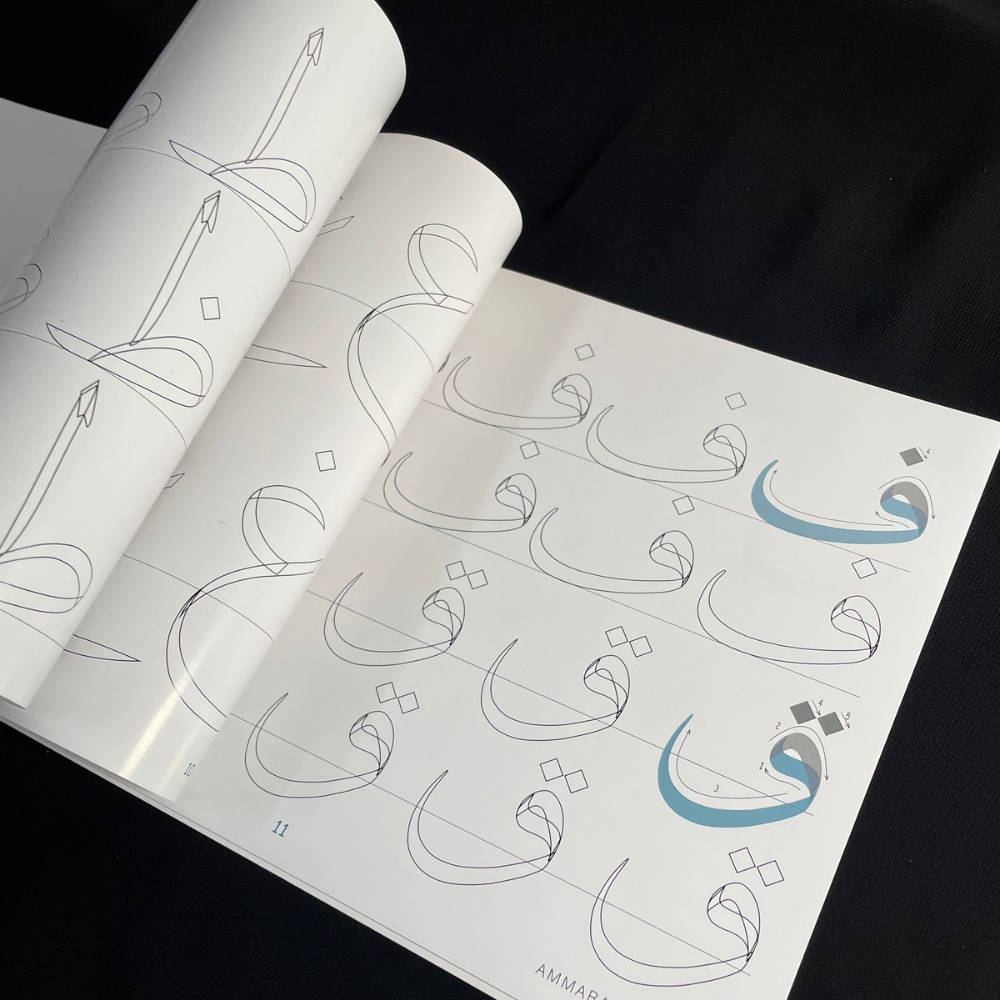 ط
ظ
ط
ع
غ
ف ف ف
4
ف ف ف
ق ق ق
1 2 3 4 5
ق ق ق
10
11